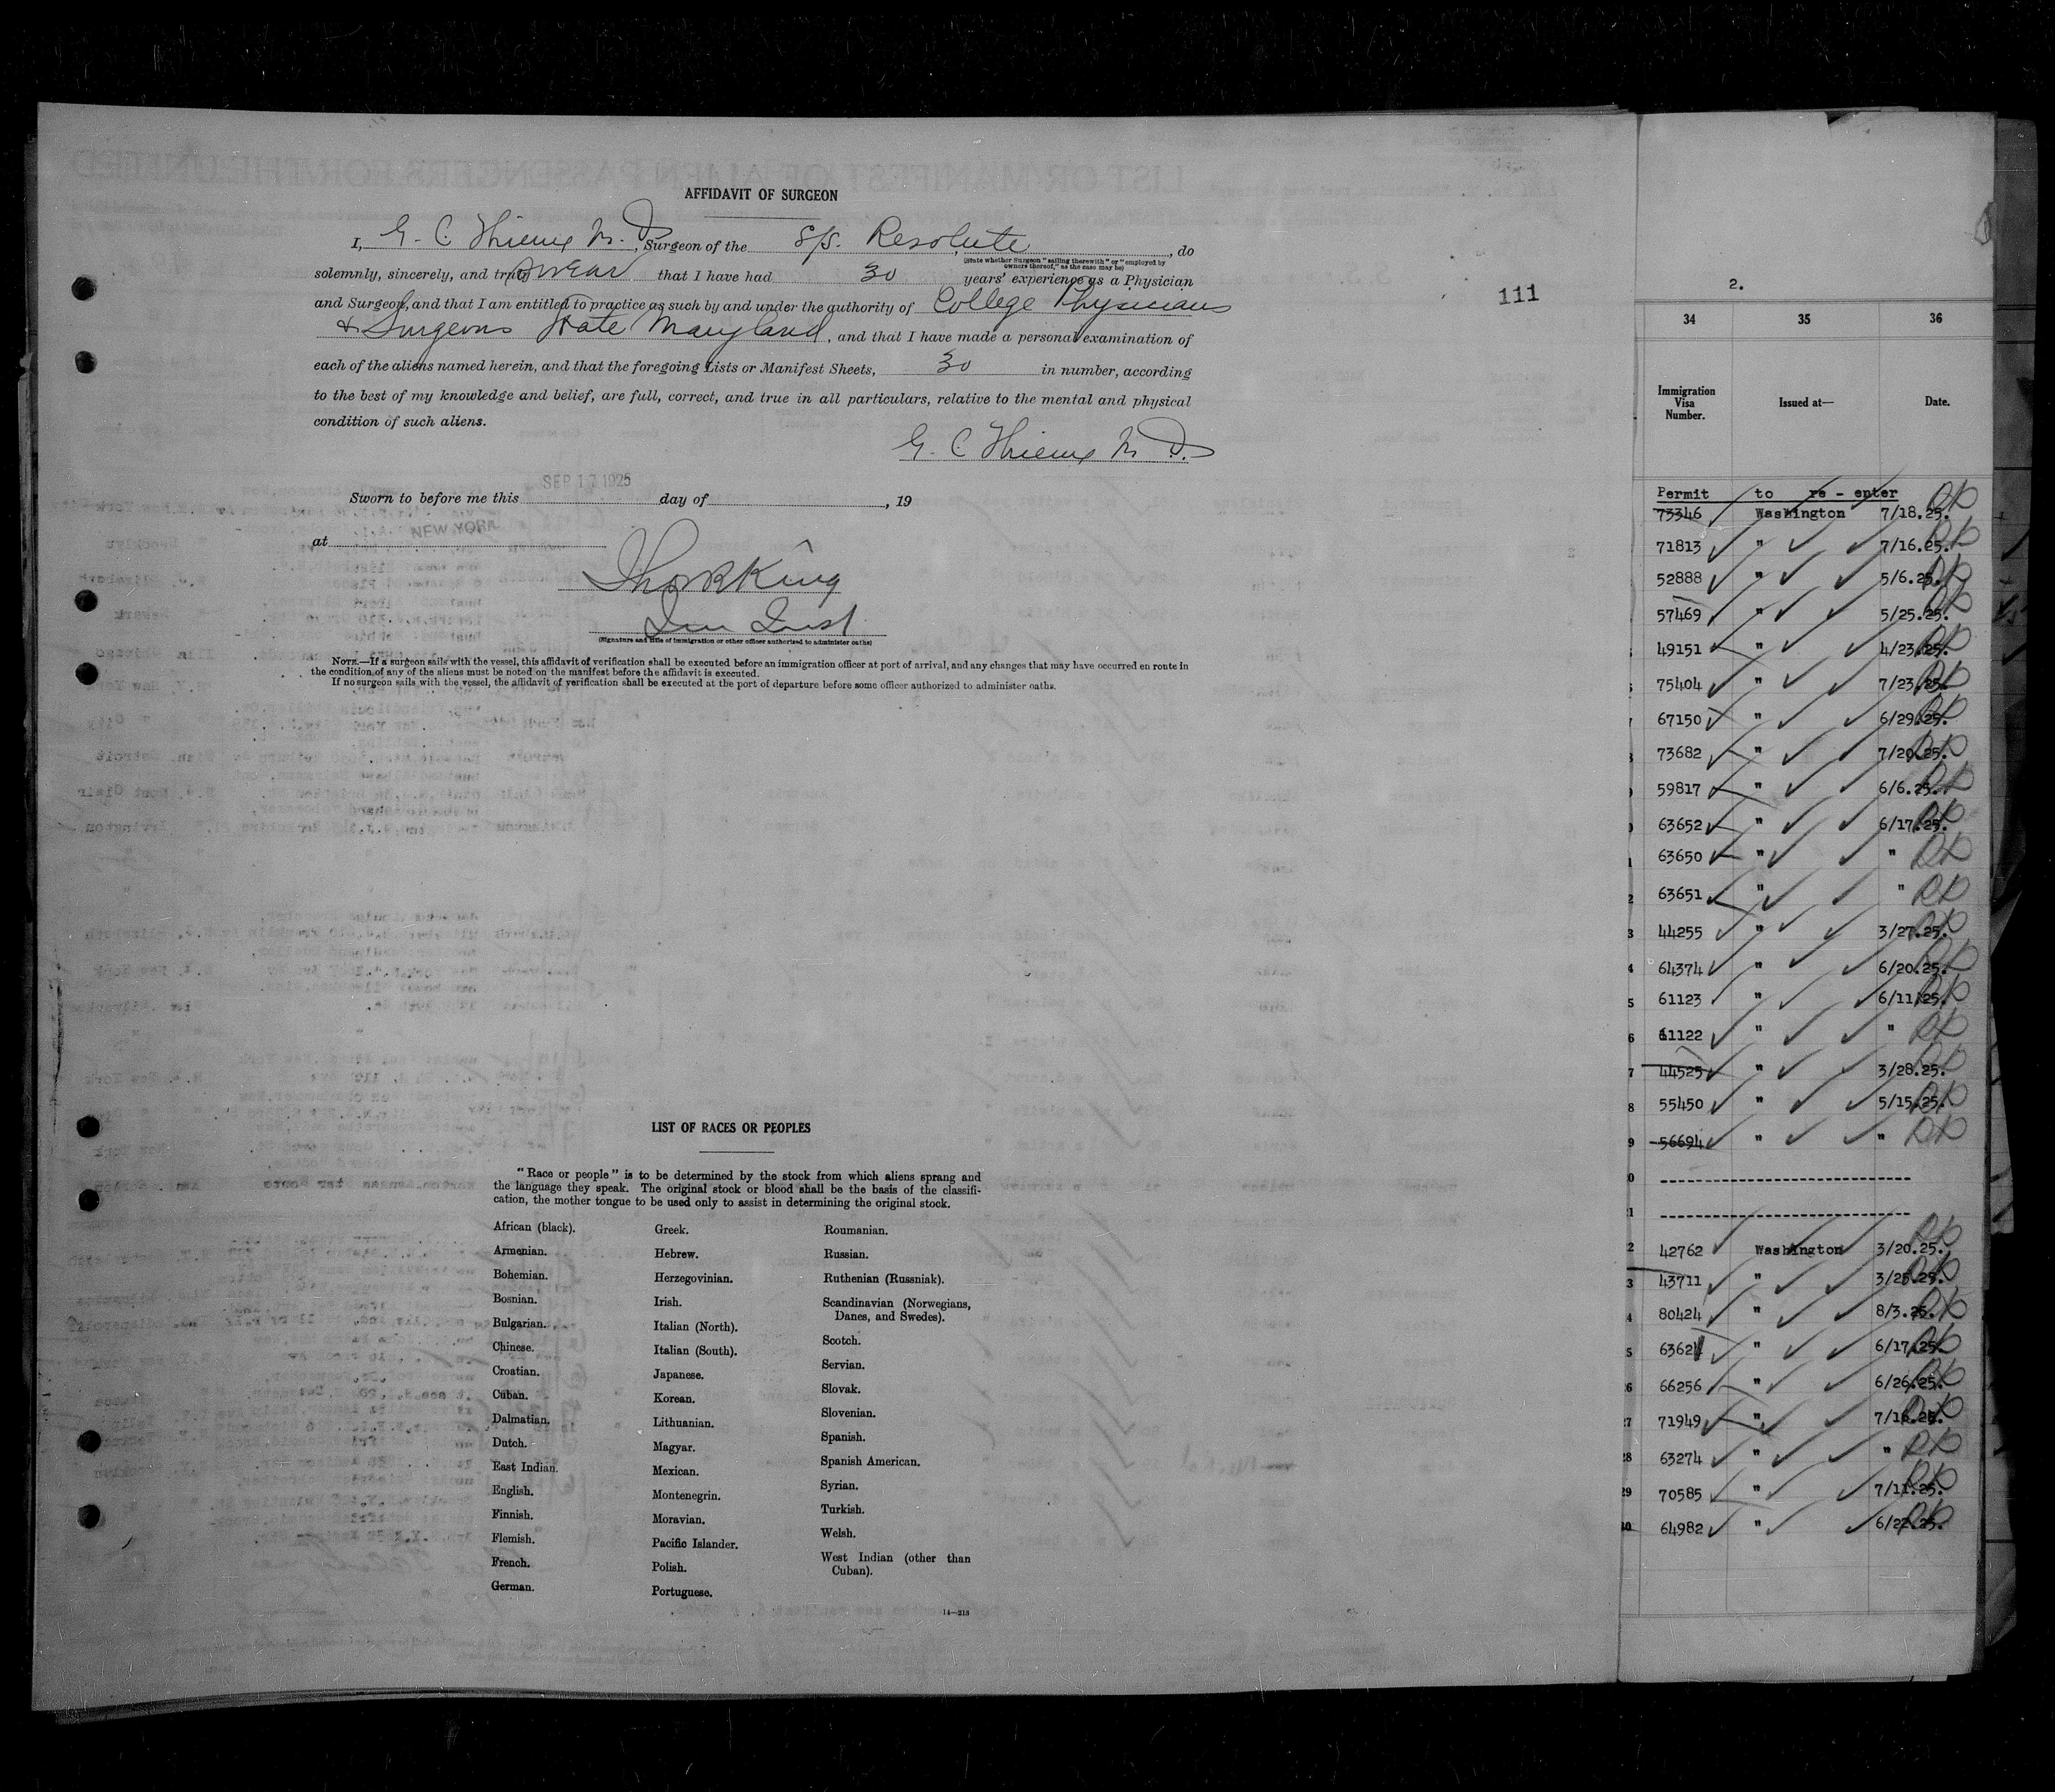 AFFIDAVIT OF SURGEON
I, G. C. Thieme M. D., Surgeon of the S/S. Resolute, do
(State whether Surgeon "sailing therewith" or "employed by
owners thereof," as the case may be)
solemnly, sincerely, and truly swear that I have had 30 years' experience as a Physician
and Surgeon, and that I am entitled to practice as such by and under the authority of College Physicians
& Surgeons State Maryland, and that I have made a personal examination of
each of the aliens named herein, and that the foregoing Lists or Manifest Sheets, 30 in number, according
to the best of my knowledge and belief, are full, correct, and true in all particulars, relative to the mental and physical
condition of such aliens.
G. C. Thieme M. D.
Sworn to before me this SEP 17 1925 day of , 19
at NEW YORK
King
(Signature and title of immigration or other officer authorized to administer oaths)
NOTE.—If a surgeon sails with the vessel, this affidavit of verification shall be executed before an immigration officer at port of arrival, and any changes that may have occurred en route in
the condition of any of the aliens must be noted on the manifest before the affidavit is executed.
If no surgeon sails with the vessel, the affidavit of verification shall be executed at the port of departure before some officer authorized to administer oaths.
111
LIST OF RACES OR PEOPLES
"Race or people" is to be determined by the stock from which aliens sprang and
the language they speak. The original stock or blood shall be the basis of the classifi-
cation, the mother tongue to be used only to assist in determining the original stock.
African (black).
Armenian.
Bohemian.
Bosnian.
Bulgarian.
Chinese.
Croatian.
Cuban.
Dalmatian.
Dutch.
East Indian.
English.
Finnish.
Flemish.
French.
German.
Greek.
Hebrew.
Herzegovinian.
Irish.
Italian (North).
Italian (South).
Japanese.
Korean.
Lithuanian.
Magyar.
Mexican.
Montenegrin.
Moravian.
Pacific Islander.
Polish.
Portuguese.
Roumanian.
Russian.
Ruthenian (Russniak).
Scandinavian (Norwegians,
Danes, and Swedes).
Scotch.
Servian.
Slovak.
Slovenian.
Spanish.
Spanish American.
Syrian.
Turkish.
Welsh.
West Indian (other than
Cuban).
14—213
2.
34 35 36
Immigration
Visa
Number.
Issued at—
Date.
Permit to re - enter
73346 Washington 7/18.25.
71813 " 7/16.25.
52888 " 5/6.25.
57469 " 5/25.25.
49151 " 4/23.25.
75404 " 7/23.25.
67150 " 6/29.25.
73682 " 7/20.25.
59817 " 6/6.25.
63652 " 6/17.25.
63650 " "
63651 " "
44255 " 3/27.25.
64374 " 6/20.25.
61123 " 6/11.25.
61122 " "
44525 " 3/28.25.
55450 " 5/15.25.
56694 " "
42762 Washington 3/20.25.
43711 " 3/25.25.
80424 " 8/3.25.
63621 " 6/17.25.
66256 " 6/26.25.
71949 " 7/16.25.
63274 " "
70585 " 7/11.25.
64982 " 6/22.25.